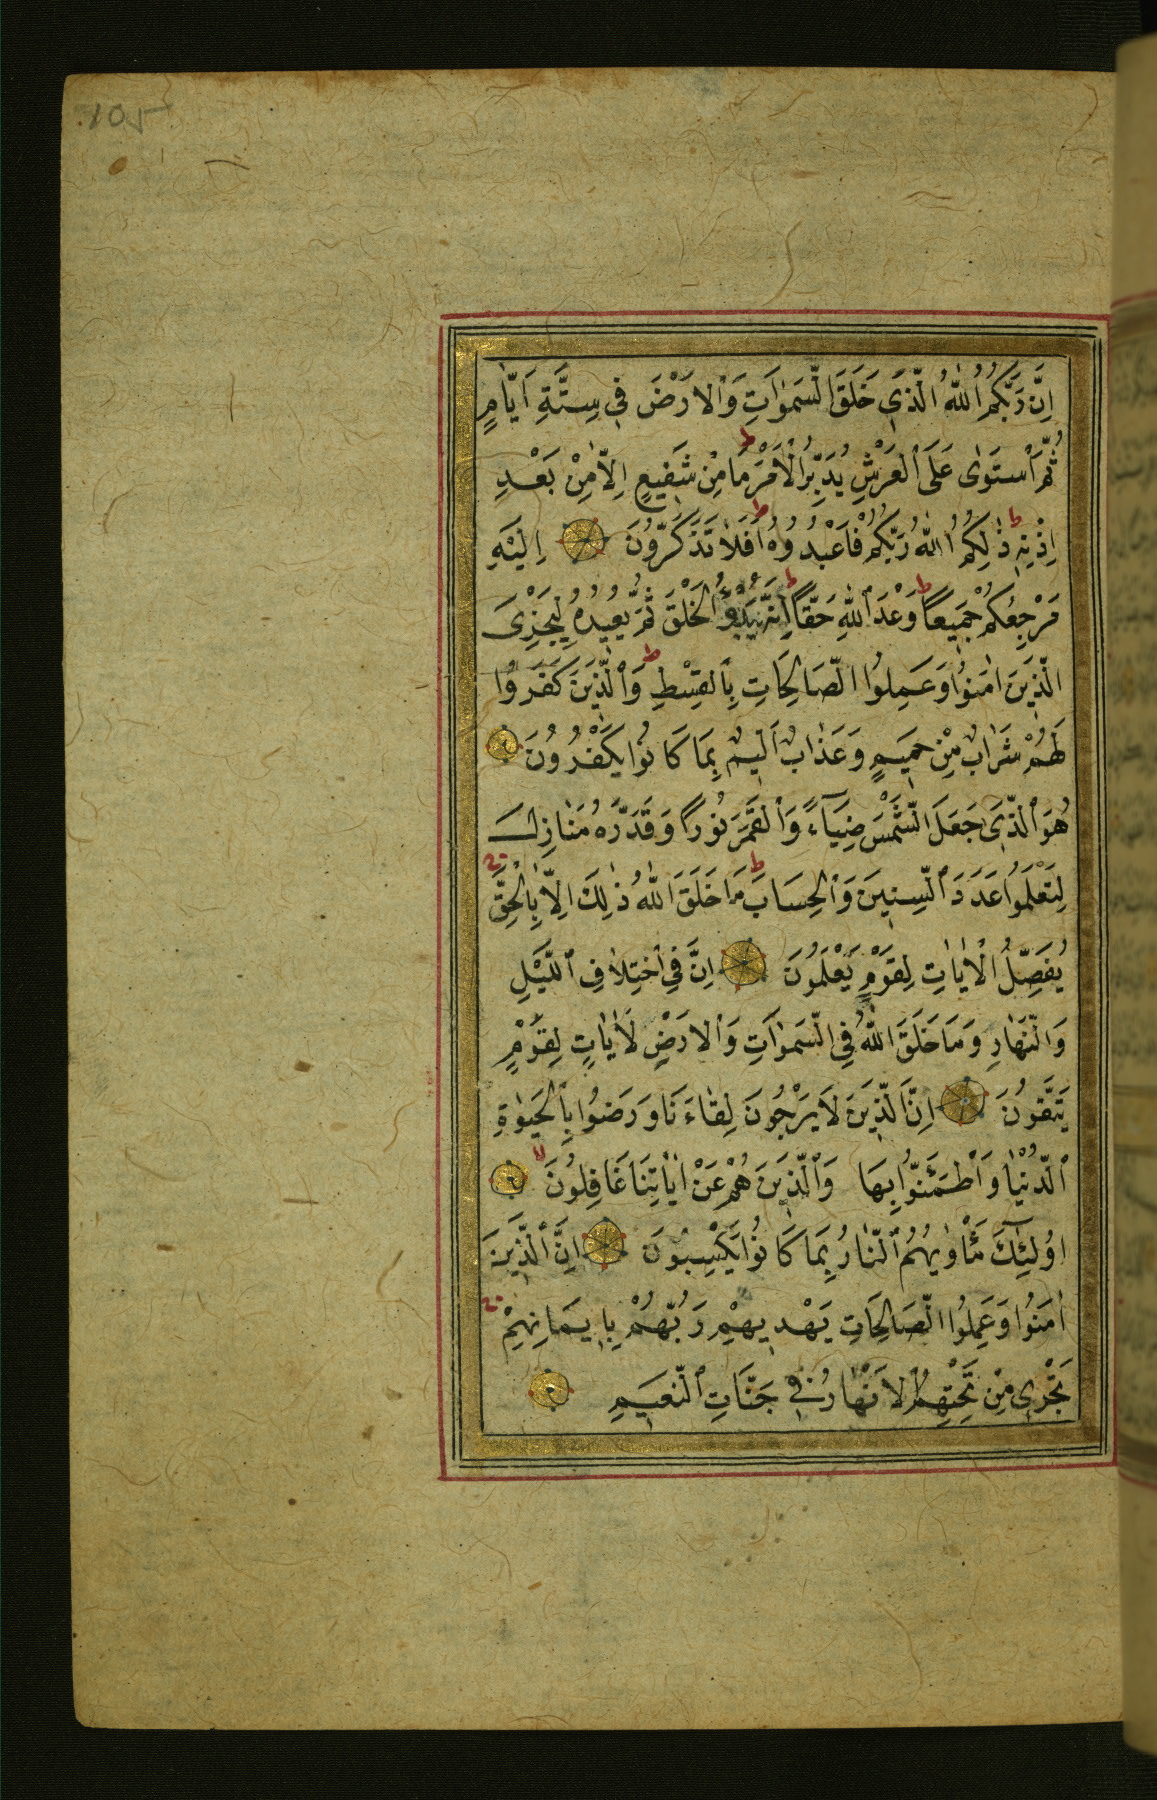 105
اِنَّ رَبَّكُمُ اللّٰهُ الَّذِي خَلَقَ السَّمٰوَاتِ وَالْاَرْضَ فِي سِتَّةِ اَيَّامٍ
ثُمَّ اسْتَوٰى عَلَى الْعَرْشِ يُدَبِّرُ الْاَمْرَ ط مَا مِنْ شَفِيعٍ اِلَّا مِنْ بَعْدِ
اِذْنِهِ ط ذٰلِكُمُ اللّٰهُ رَبُّكُمْ فَاعْبُدُوهُ ط اَفَلَا تَذَكَّرُونَ اِلَيْهِ
مَرْجِعُكُمْ جَمِيعًا ط وَعْدَ اللّٰهِ حَقًّا ط اِنَّهُ يَبْدَؤُا الْخَلْقَ ثُمَّ يُعِيدُهُ لِيَجْزِىَ
الَّذِينَ اٰمَنُوا وَعَمِلُوا الصَّالِحَاتِ بِالْقِسْطِ ط وَالَّذِينَ كَفَرُوا
لَهُمْ شَرَابٌ مِنْ حَمِيمٍ وَعَذَابٌ اَلِيمٌ بِمَا كَانُوا يَكْفُرُونَ
هُوَ الَّذِي جَعَلَ الشَّمْسَ ضِيَاءً وَالْقَمَرَ نُورًا وَقَدَّرَهُ مَنَازِلَ
لِتَعْلَمُوا عَدَدَ السِّنِينَ وَالْحِسَابَ ط مَا خَلَقَ اللّٰهُ ذٰلِكَ اِلَّا بِالْحَقِّ
يُفَصِّلُ الْاٰيَاتِ لِقَوْمٍ يَعْلَمُونَ اِنَّ فِي اخْتِلَافِ اللَّيْلِ
وَالنَّهَارِ وَمَا خَلَقَ اللّٰهُ فِي السَّمٰوَاتِ وَالْاَرْضِ لَاٰيَاتٍ لِقَوْمٍ
يَتَّقُونَ اِنَّ الَّذِينَ لَا يَرْجُونَ لِقَاءَنَا وَرَضُوا بِالْحَيٰوةِ
الدُّنْيَا وَاطْمَئَنُّوا بِهَا وَالَّذِينَ هُمْ عَنْ اٰيَاتِنَا غَافِلُونَ لا
اُولٰئِكَ مَأْوٰيهُمُ النَّارُ بِمَا كَانُوا يَكْسِبُونَ اِنَّ الَّذِينَ
اٰمَنُوا وَعَمِلُوا الصَّالِحَاتِ يَهْدِيهِمْ رَبُّهُمْ بِاِيمَانِهِمْ
تَجْرِي مِنْ تَحْتِهِمُ الْاَنْهَارُ فِي جَنَّاتِ النَّعِيمِ